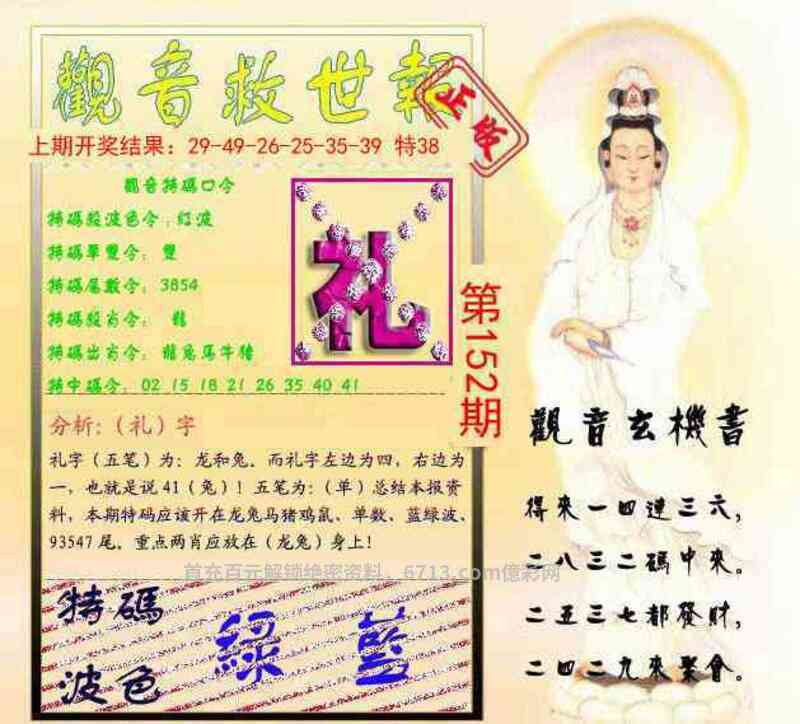 觀音救世報
正版
上期开奖结果：29-49-26-25-35-39 特38
觀音特碼口令
特碼殺波色令：红波
特碼單雙令： 雙
特碼尾數令： 3854
特碼殺肖令： 龍
特碼出肖令： 龍兔馬牛豬
特中碼令： 02 15 18 21 26 35 40 41
礼
第152期
分析:（礼）字
礼字（五笔）为：龙和兔。而礼字左边为四，右边为
一，也就是说41（兔）！五笔为:（单）总结本报资
料，本期特码应该开在龙兔马猪鸡鼠、单数、蓝绿波、
93547尾。重点两肖应放在（龙兔）身上！
首充百元解锁绝密资料，6713.com億彩网
特碼
波色
綠 藍
觀音玄機書
得來一四連三六，
二八三二碼中來。
二五三七都發財，
二四二九來聚會。